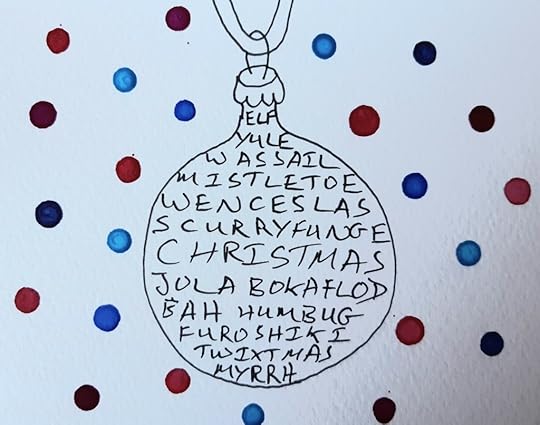 ELF
YULE
WASSAIL
MISTLETOE
WENCESLAS
SCURRYFUNGE
CHRISTMAS
JOLA BOKAFLOD
BAH HUMBUG
FUROSHIKI
TWIXTMAS
MYRRH